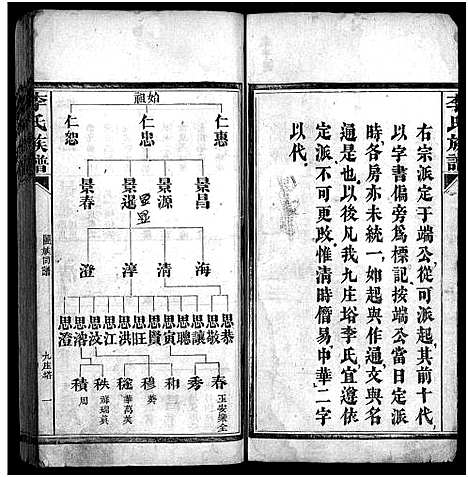 李氏族譜
右宗派定于端公從可派起其前十代
以字書偏旁為標記按端公當日定派
時各房亦未統一如起與作通文與名
通是也以後凡我九庄塔李氏宜遵依
定派不可更改惟清時僭易中華二字
以代
始祖
仁惠 仁忠 仁恕
景昌 景源 景暹 景春
海 清 淳 澄
思恭 思敬 思讓 思聰 思寅 思賢 思旺 思洪 思江 思汶 思澄
春 秀 和 穆 穟 秩 積
李氏族譜
九庄塔 一